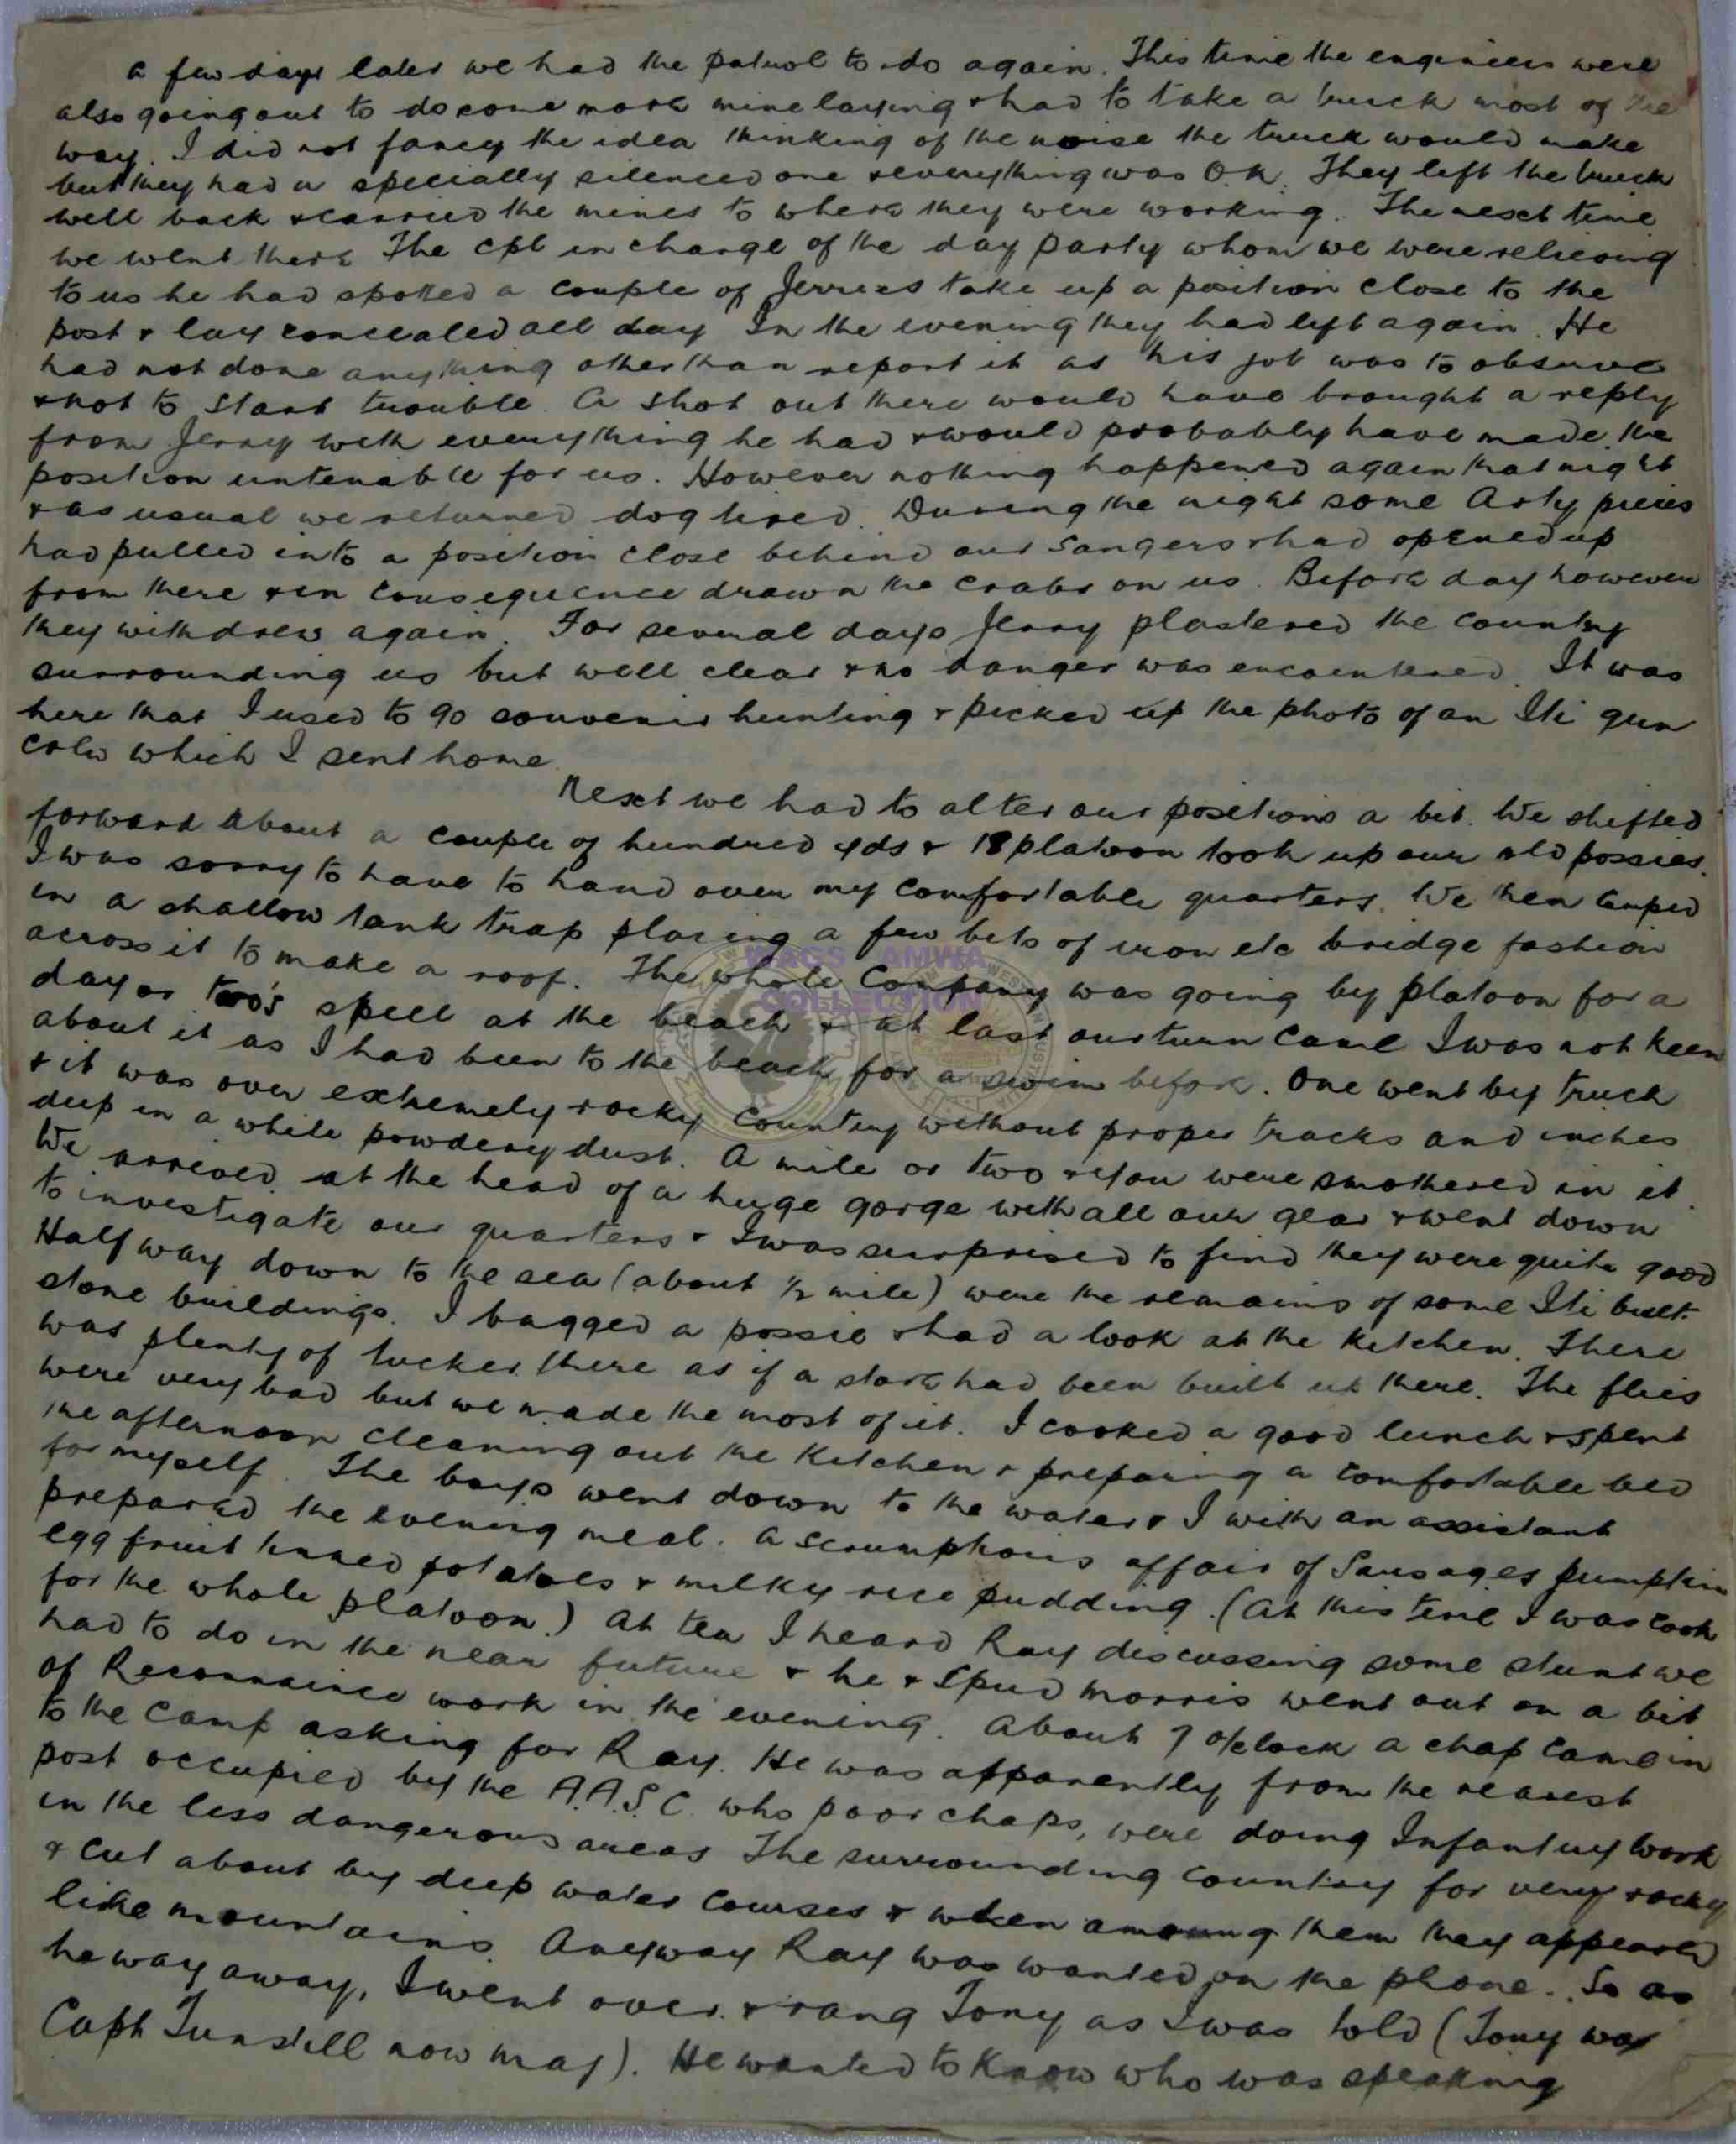 a few days later we had the patrol to do again. This time the engineers were
also going out to do some more mine laying & had to take a truck most of the
way. I did not fancy the idea thinking of the noise the truck would make
but they had a specially silenced one & everything was O.K. They left the truck
well back & carried the mines to where they were working. The next time
we went there The cpl in charge of the day party whom we were relieving
to us he had spotted a couple of Jerries take up a position close to the
post & lay concealed all day In the evening they had left again. He
had not done anything other than report it as his job was to observe
& not to start trouble. A shot out there would have brought a reply
from Jerry with everything he had & would probably have made the
position untenable for us. However nothing happened again that night
& as usual we returned dog tired. During the night some Arty pieces
had pulled into a position close behind our sangers & had opened up
from there & in consequence drawn the crabs on us. Before day however
they withdrew again. For several days Jerry plastered the country
surrounding us but well clear & no danger was encountered. It was
here that I used to go souvenir hunting & picked up the photo of an Iti gun
crew which I sent home
Next we had to alter our positions a bit. We shifted
forward about a couple of hundred yds & 18 platoon took up our old possies.
I was sorry to have to hand over my comfortable quarters. We then camped
in a shallow tank trap placing a few bits of iron etc bridge fashion
across it to make a roof. The whole Company was going by platoon for a
day or two's spell at the beach & at last our turn came I was not keen
about it as I had been to the beach for a swim before. One went by truck
& it was over extremely rocky country without proper tracks and inches
deep in a white powdery dust. A mile or two & you were smothered in it.
We arrived at the head of a huge gorge with all our gear & went down
to investigate our quarters & I was surprised to find they were quite good
Half way down to the sea (about ½ mile) were the remains of some Iti built
stone buildings. I bagged a possie & had a look at the kitchen. There
was plenty of tucker there as if a store had been built up there. The flies
were very bad but we made the most of it. I cooked a good lunch & spent
the afternoon cleaning out the kitchen & preparing a comfortable bed
for myself. The boys went down to the water & I with an assistant
prepared the evening meal. A scrumphous affair of Sausages pumpkin
egg fruit tinned potatoes & milky rice pudding. (At this time I was cook
for the whole platoon.) At tea I heard Ray discussing some stunt we
had to do in the near future & he & Spud Morris went out on a bit
of Reconnaince work in the evening. About 7 o/clock a chap came in
to the Camp asking for Ray. He was apparently from the nearest
post occupied by the A.A.S.C. who poor chaps, were doing Infantry work
in the less dangerous areas The surrounding country for very rocky
& cut about by deep water courses & when amoung them they appeared
like mountains. Anyway Ray was wanted on the phone. So as
he way away, I went over & rang Tony as I was told (Tony was
Capt Tunstill now maj). He wanted to know who was speaking
WAGS AMWA
COLLECTION